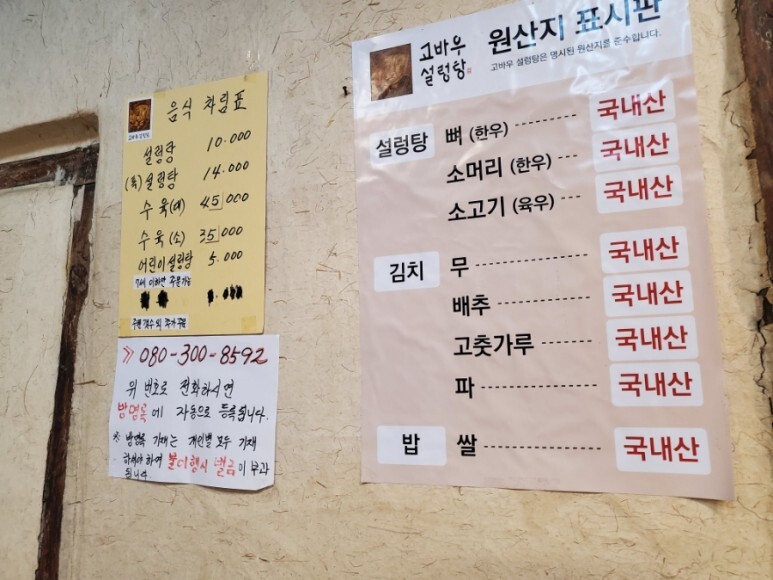 음식 차림표
고바우 설렁탕
설렁탕 10.000
(특)설렁탕 14.000
수육(대) 45.000
수육(소) 35.000
어린이설렁탕 5.000
7세 이하만 주문가능
080-300-8592
위 번호로 전화하시면
방명록에 자동으로 등록됩니다.
※ 방명록 기재는 개인별 모두 기재
하셔야 하며 불이행시 벌금이 부과
됩니다.
고바우
설렁탕
원산지 표시판
고바우 설렁탕은 명시된 원산지를 준수합니다.
설렁탕 뼈 (한우) ---- 국내산
소머리 (한우) --- 국내산
소고기 (육우) --- 국내산
김치 무 ---- 국내산
배추 ---- 국내산
고춧가루 ---- 국내산
파 ---- 국내산
밥 쌀 ---- 국내산